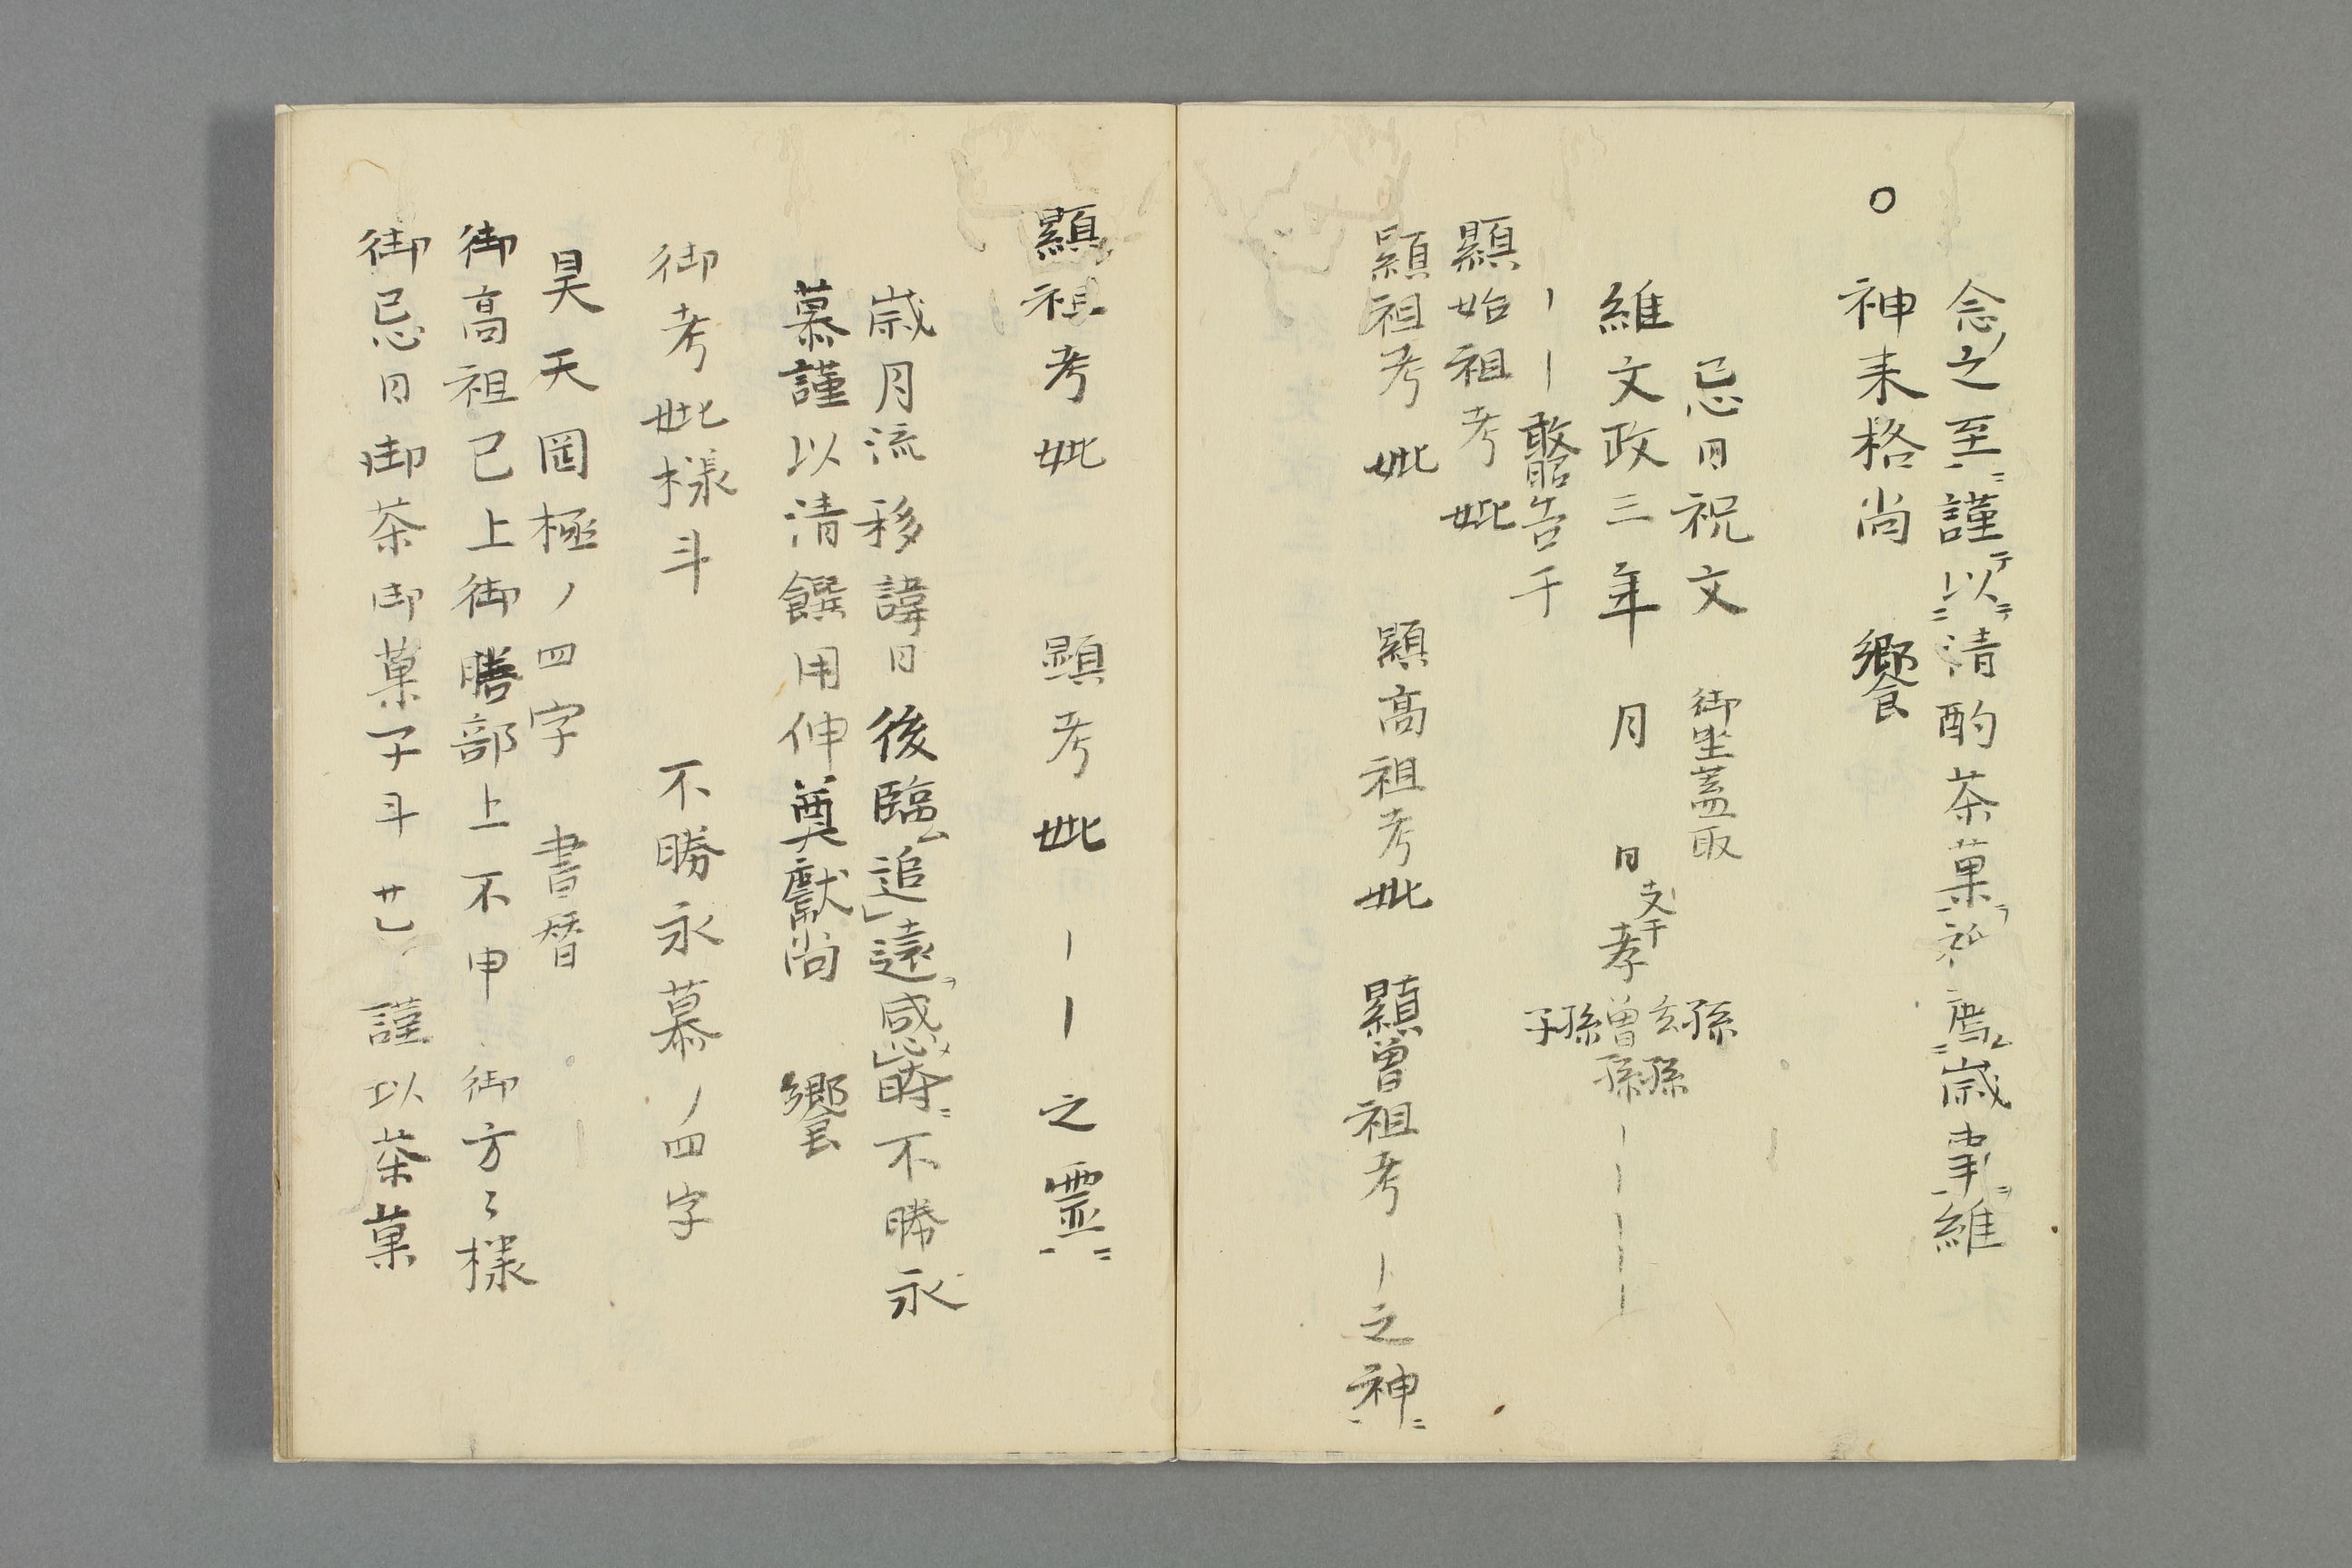 念之至謹以清酌茶菓祇薦歳事維
〇神来格尚　饗
忌日祝文　御坐蓋取
維文政三年　月　日支干孝玄孫曽孫孫子｜｜｜｜
｜｜敢昭告于
顯始祖考妣
顯祖考妣　顯高祖考妣　顯曽祖考｜之神
顯祖考妣　顯考妣｜｜之霊
歳月流移諱日後臨追遠感時不勝永
慕謹以清饌用伸奠獻尚　饗
御考妣様斗　不勝永慕ノ四字
昊天罔極ノ四字　書替
御高祖已上御膳部上不申　御方々様
御忌日御茶御菓子斗　謹以茶菓